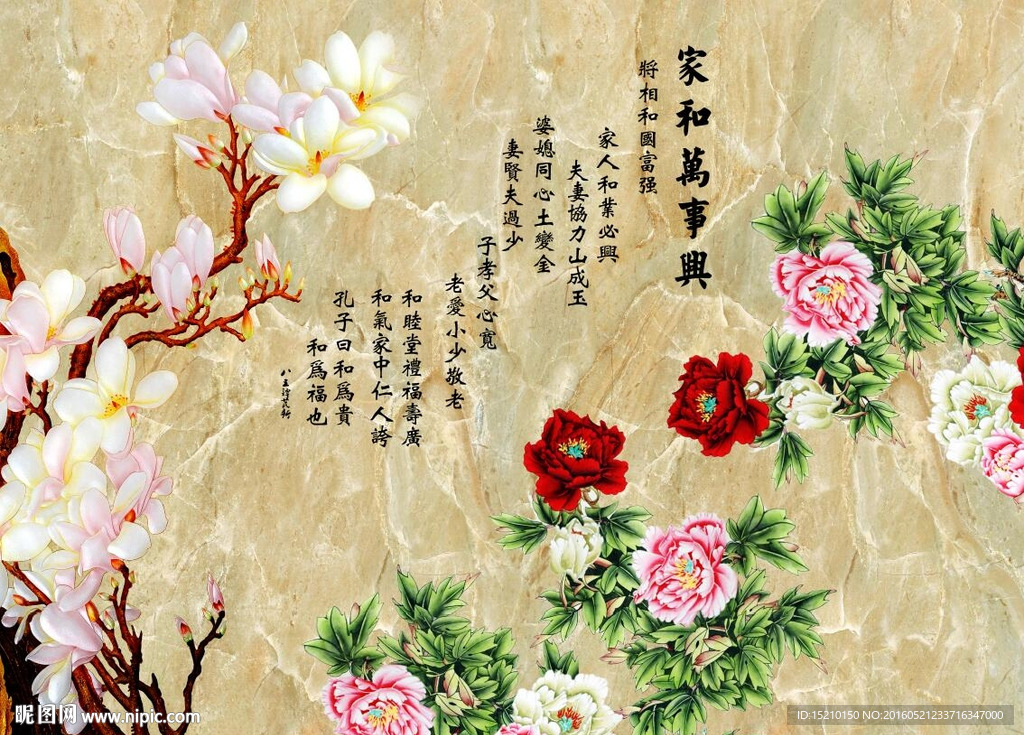 家和萬事興
將相和國富强
家人和業必興
夫妻協力山成玉
婆媳同心土變金
妻賢夫過少
子孝父心寬
老愛小少敬老
和睦堂禮福壽廣
和氣家中仁人誇
孔子曰和爲貴
和爲福也
昵图网 www.nipic.com
ID:15210150 NO:20160521233716347000